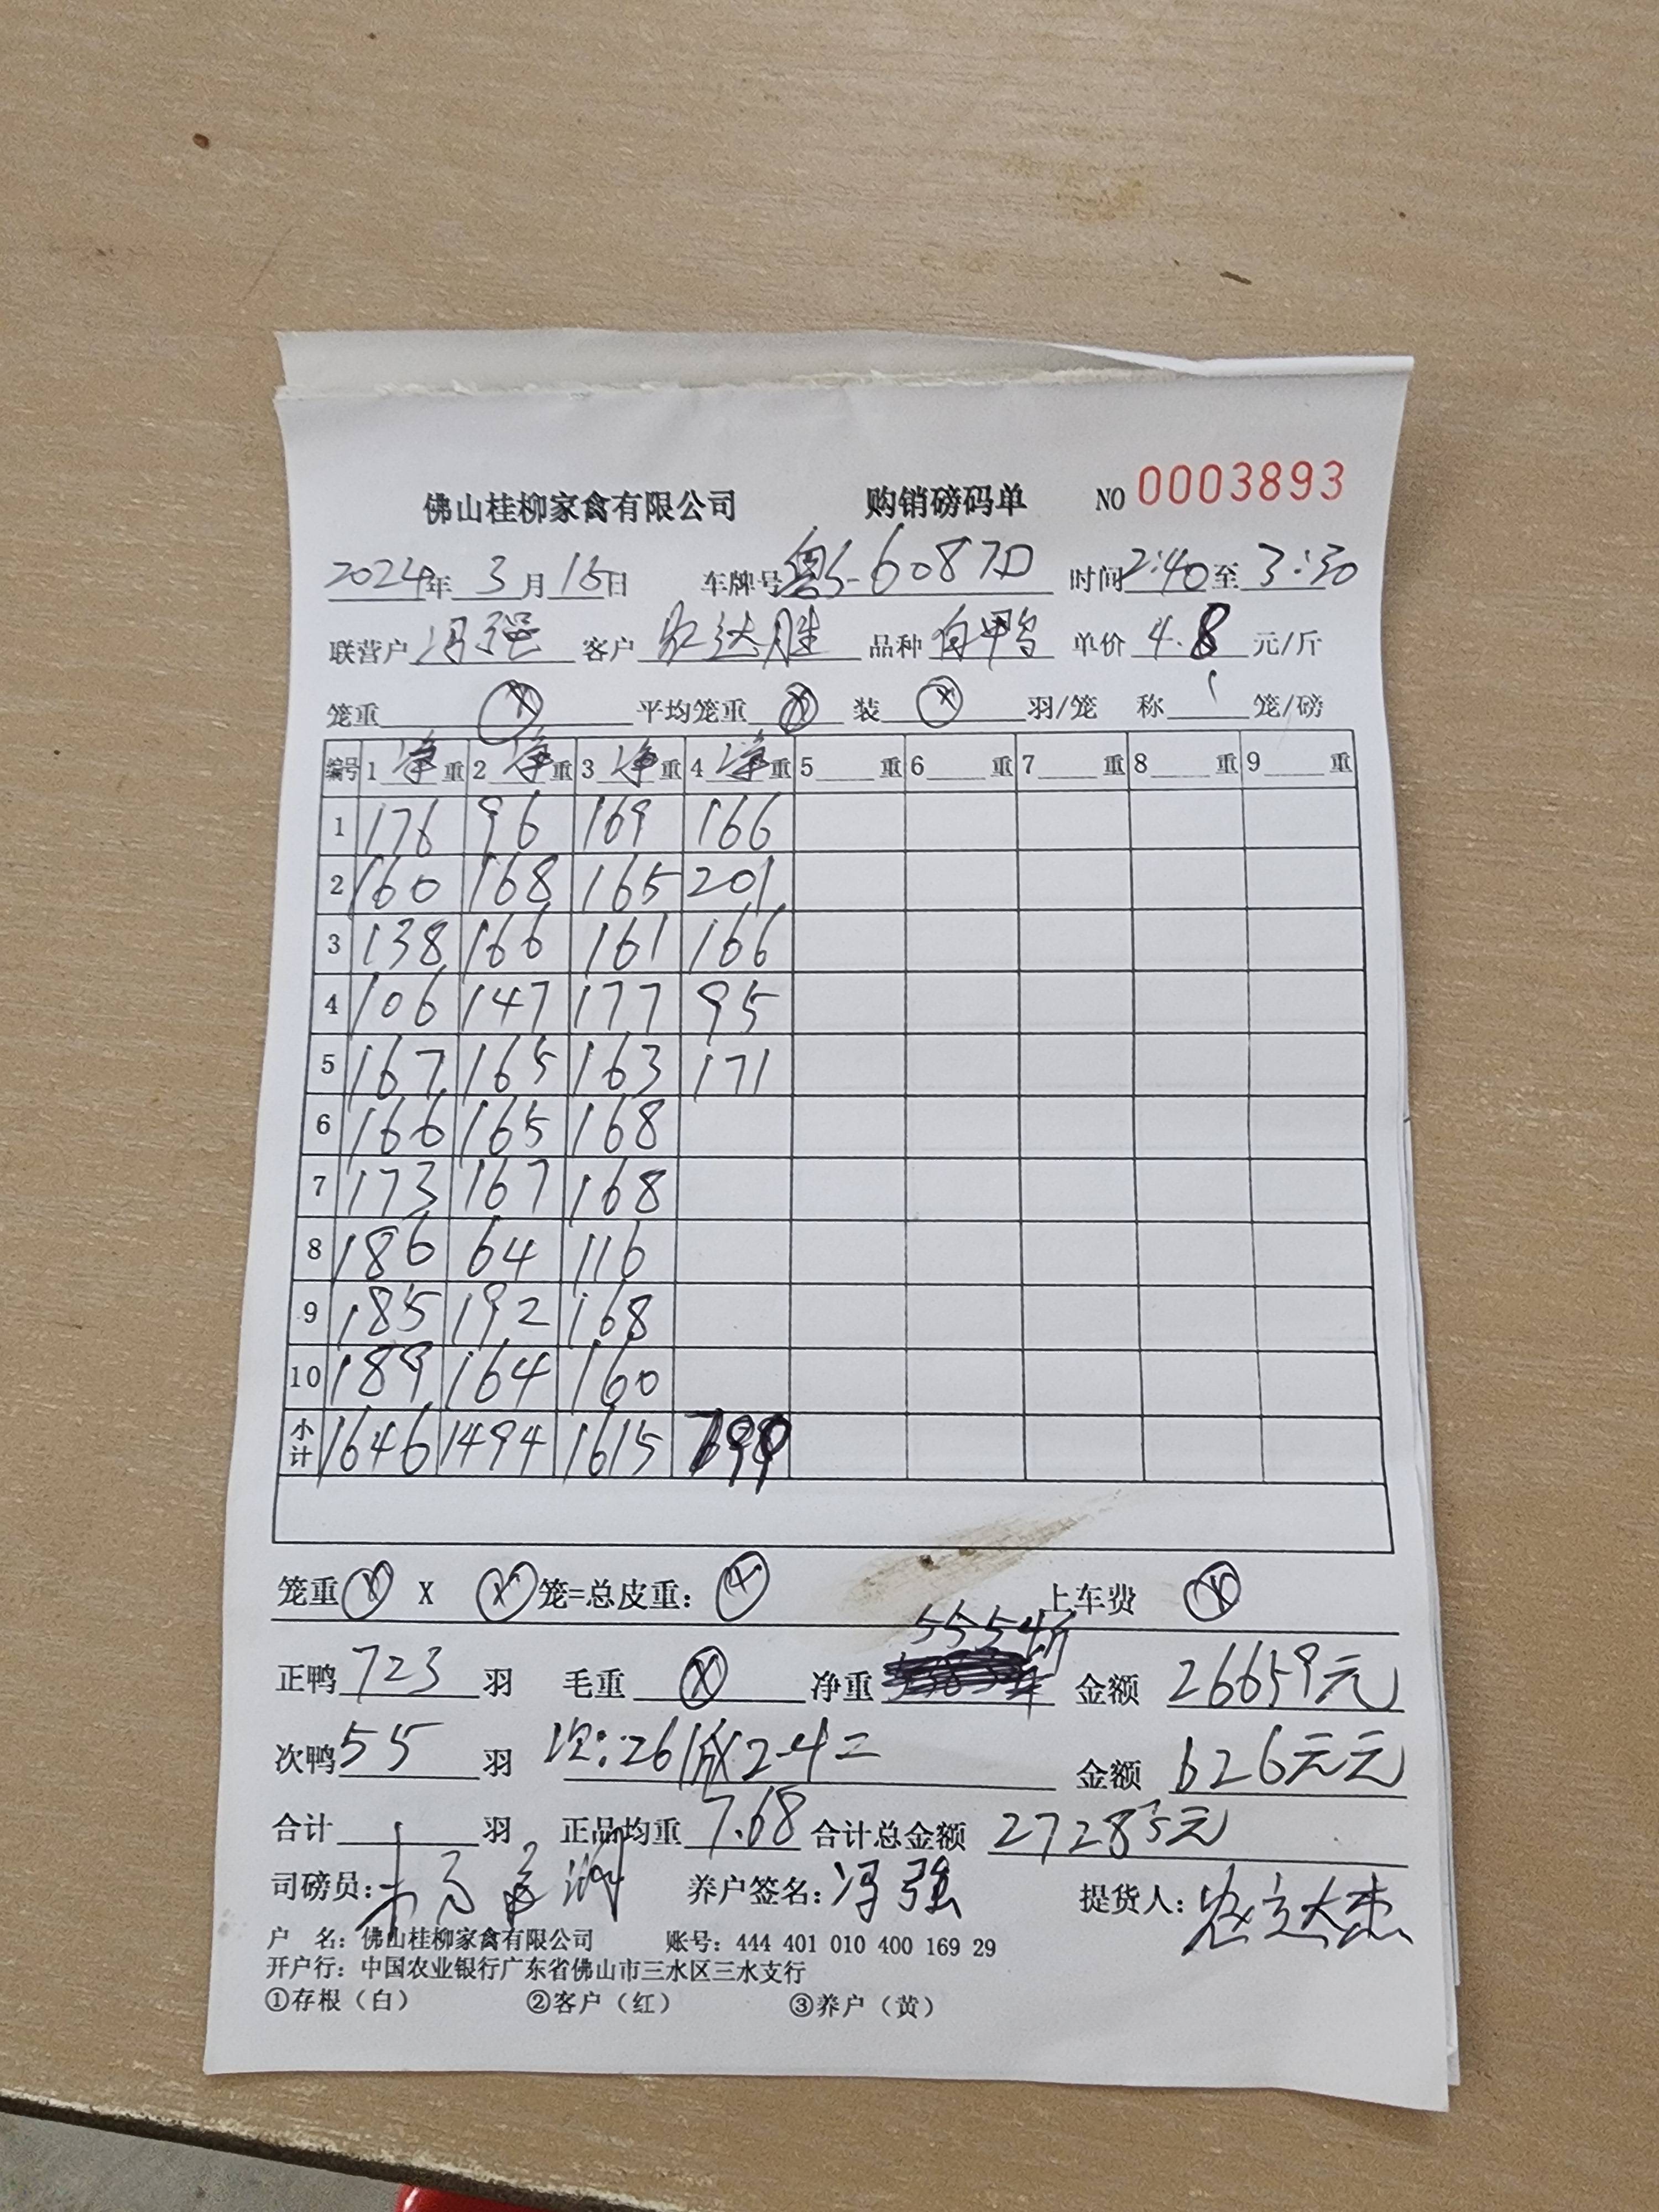 佛山桂柳家禽有限公司 购销磅码单 NO 0003893
2024年 3月 16日 车牌号 粤S-6087D 时间 2:40 至 3:30
联营户 冯强 客户 农达胜 品种 白鸭 单价 4.8 元/斤
笼重 ⓧ 平均笼重 ⓧ 装 ⓧ 羽/笼 称 1 笼/磅
编号 1 净 重 2 净 重 3 净 重 4 净 重 5 重 6 重 7 重 8 重 9 重
1 176 96 169 166
2 160 168 165 201
3 138 166 161 166
4 106 147 177 95
5 167 165 163 171
6 166 165 168
7 173 167 168
8 186 64 116
9 185 192 168
10 189 164 160
小计 1646 1494 1615 799
笼重 ⓧ X ⓧ 笼=总皮重: ⓧ 上车费 ⓧ
正鸭 723 羽 毛重 ⓧ 净重 5554斤 金额 26659元
次鸭 55 羽 次:261 2.4 = 金额 626元元
合计 羽 正品均重 7.68 合计总金额 27285元
司磅员: 养户签名: 冯强 提货人:
户 名: 佛山桂柳家禽有限公司 账号: 444 401 010 400 169 29
开户行: 中国农业银行广东省佛山市三水区三水支行
①存根（白） ②客户（红） ③养户（黄）